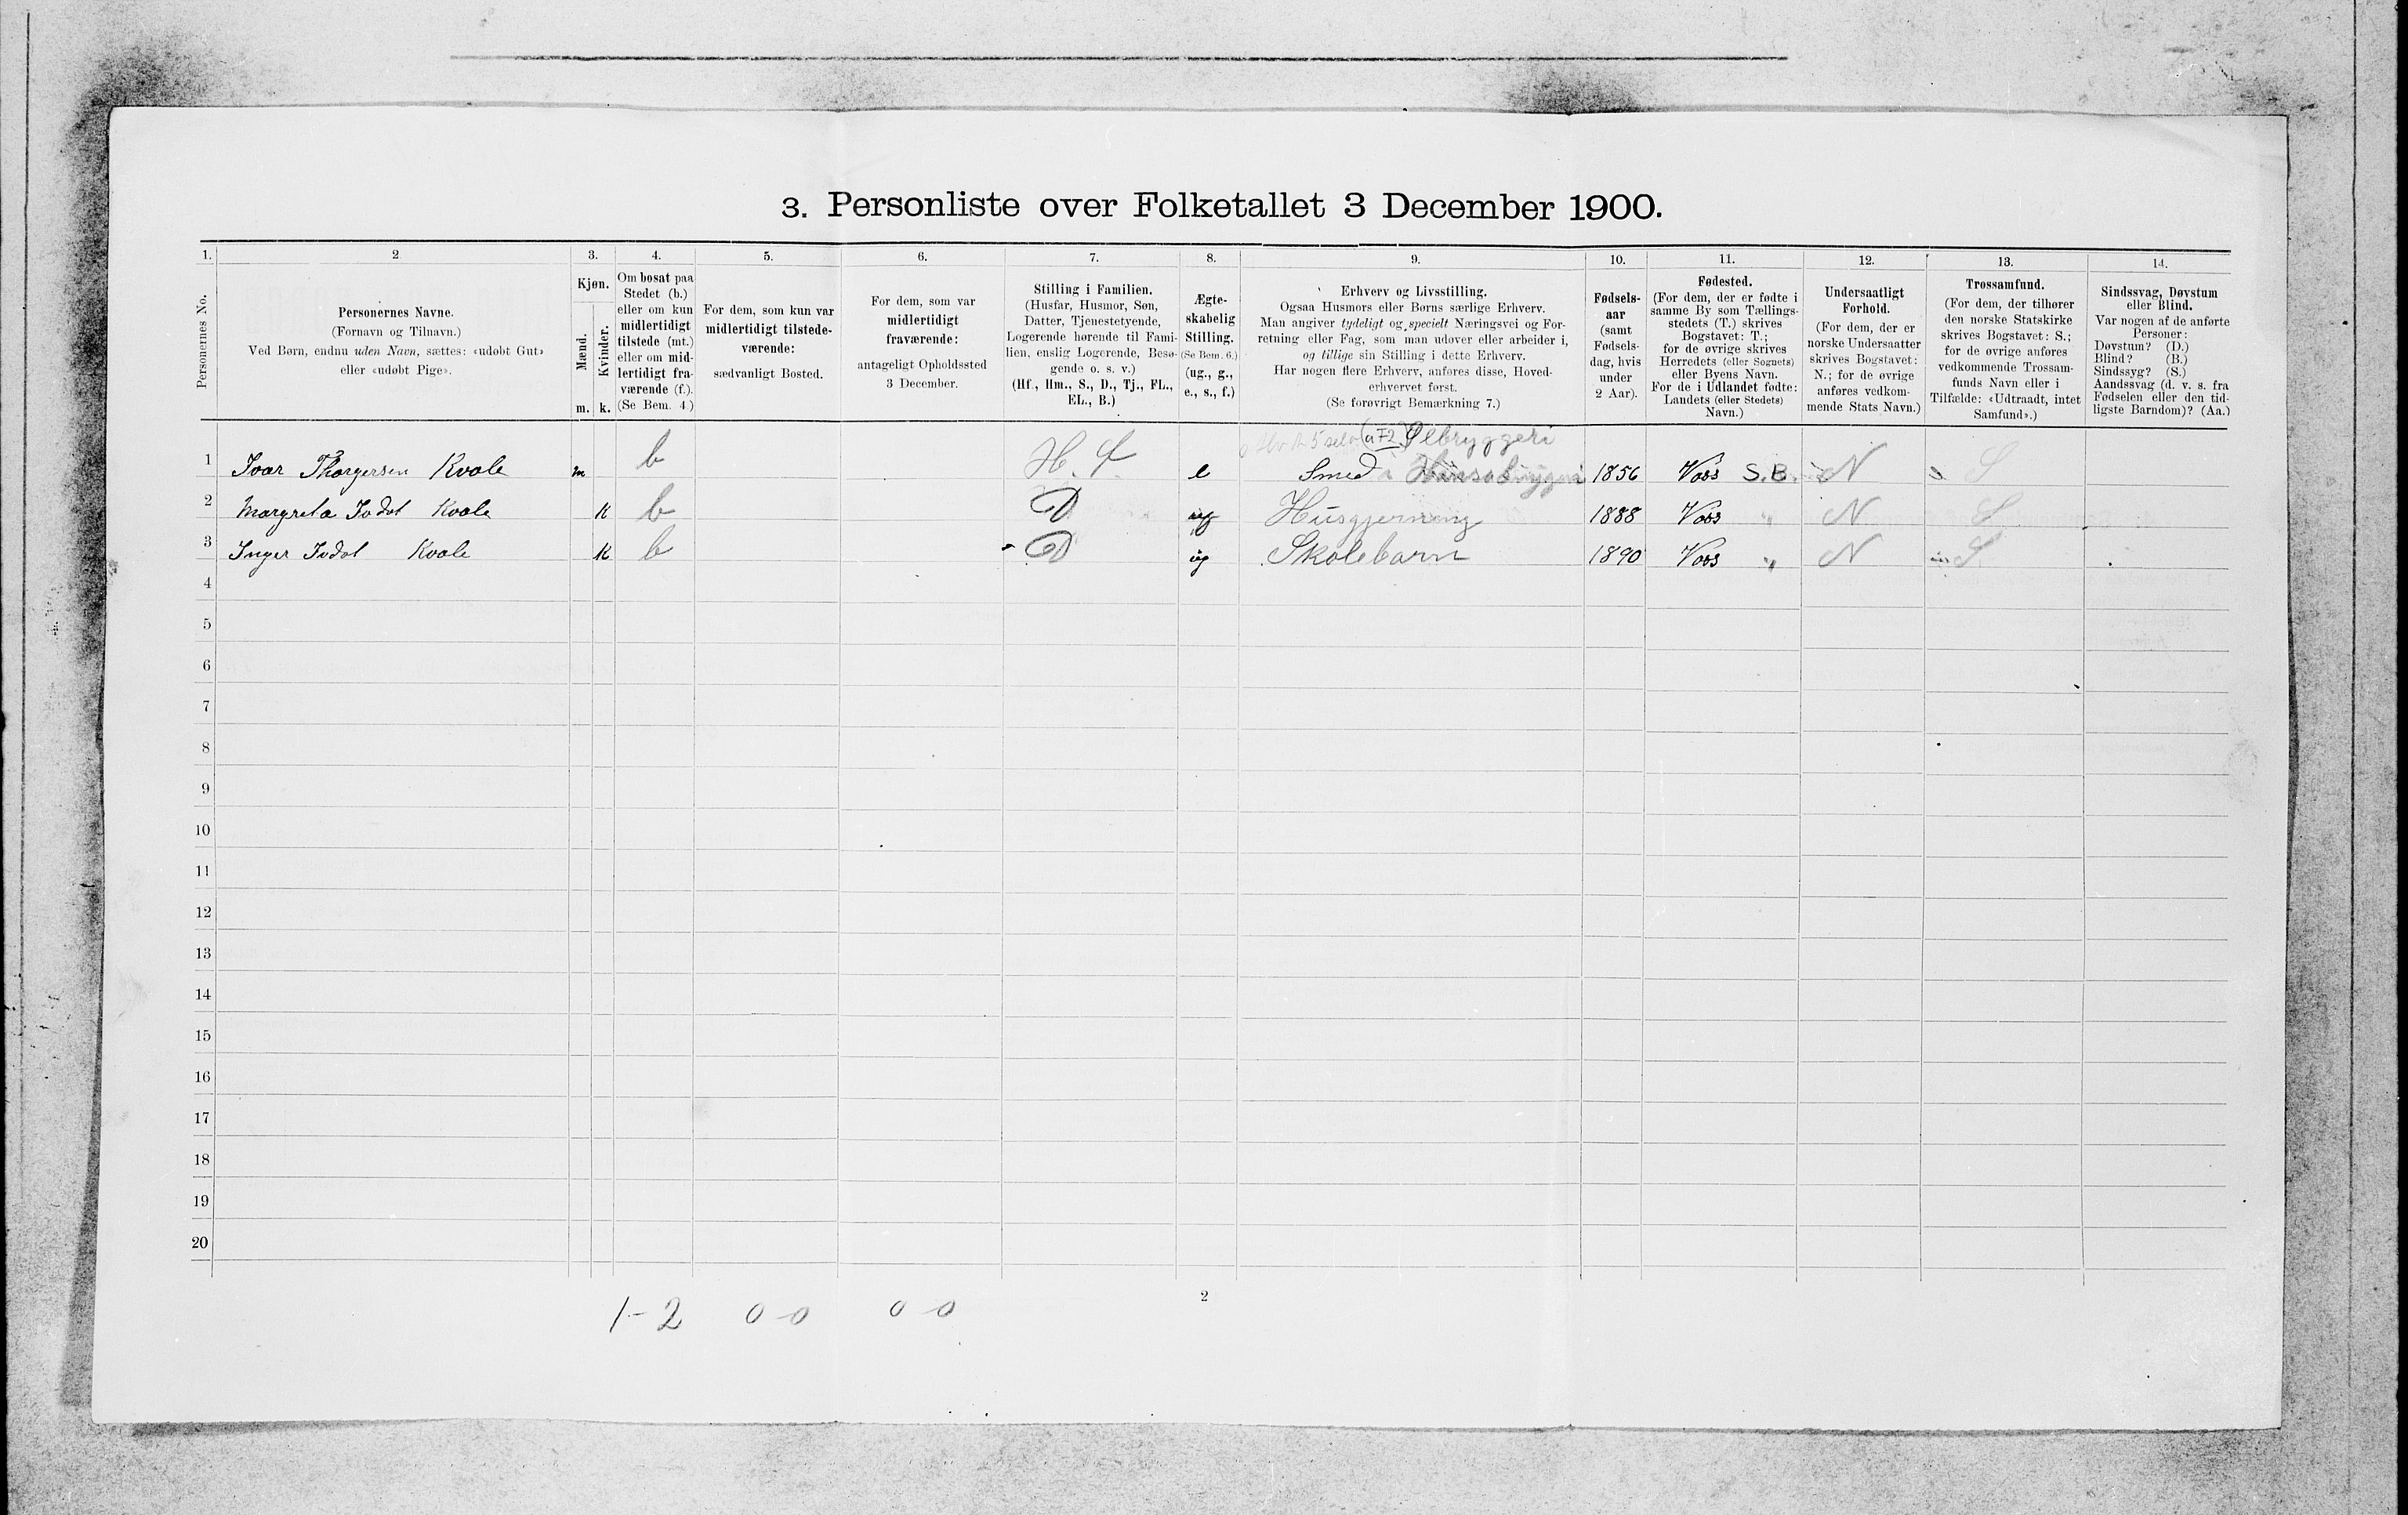 3. Personliste over Folketallet 3 December 1900.
1. 2. 3. 4. 5. 6. 7. 8. 9. 10. 11. 12. 13. 14.
Personernes No.
Personernes Navne.
(Fornavn og Tilnavn.)
Ved Børn, endnu uden Navn, sættes: «udøbt Gut»
eller «udøbt Pige».
Kjøn.
Mænd.
Kvinder.
m. k.
Om bosat paa
Stedet (b.)
eller om kun
midlertidigt
tilstede (mt.)
eller om mid-
lertidigt fra-
værende (f.).
(Se Bem. 4.)
For dem, som kun var
midlertidigt tilstede-
værende:
sædvanligt Bosted.
For dem, som var
midlertidigt
fraværende:
antageligt Opholdssted
3 December.
Stilling i Familien.
(Husfar, Husmor, Søn,
Datter, Tjenestetyende,
Logerende hørende til Fami-
lien, enslig Logerende, Besø-
gende o. s. v.)
(Hf., Hm., S., D., Tj., FL.,
EL., B.)
Ægte-
skabelig
Stilling.
(Se Bem. 6.)
(ug., g.,
e., s., f.)
Erhverv og Livsstilling.
Ogsaa Husmors eller Børns særlige Erhverv.
Man angiver tydeligt og specielt Næringsvei og For-
retning eller Fag, som man udøver eller arbeider i,
og tillige sin Stilling i dette Erhverv.
Har nogen flere Erhverv, anføres disse, Hoved-
erhvervet først.
(Se forøvrigt Bemærkning 7.)
Fødsels-
aar
(samt
Fødsels-
dag, hvis
under
2 Aar).
Fødested.
(For dem, der er fødte i
samme By som Tællings-
stedets (T.) skrives
Bogstavet: T.;
for de øvrige skrives
Herredets (eller Sognets)
eller Byens Navn.
For de i Udlandet fødte:
Landets (eller Stedets)
Navn.)
Undersaatligt
Forhold.
(For dem, der er
norske Undersaatter
skrives Bogstavet:
N.; for de øvrige
anføres vedkom-
mende Stats Navn.)
Trossamfund.
(For dem, der tilhører
den norske Statskirke
skrives Bogstavet: S.;
for de øvrige anføres
vedkommende Trossam-
funds Navn eller i
Tilfælde: «Udtraadt, intet
Samfund».)
Sindssvag, Døvstum
eller Blind.
Var nogen af de anførte
Personer:
Døvstum? (D.)
Blind? (B.)
Sindssyg? (S.)
Aandssvag (d. v. s. fra
Fødselen eller den tid-
ligste Barndom)? (Aa.)
(a F2) Ølbryggeri
1 Ivar Thorgersen Kvale m b H. F e Smed i Hansabryggeri 1856 Voss S.B. N S
2 Margreta Ivdot Kvale K b D ug Husgjerning 1888 Voss " N S
3 Inger Ivdot Kvale K b D ug Skolebarn 1890 Voss " N S
4
5
6
7
8
9
10
11
12
13
14
15
16
17
18
19
20
1-2 0-0 0-0
2